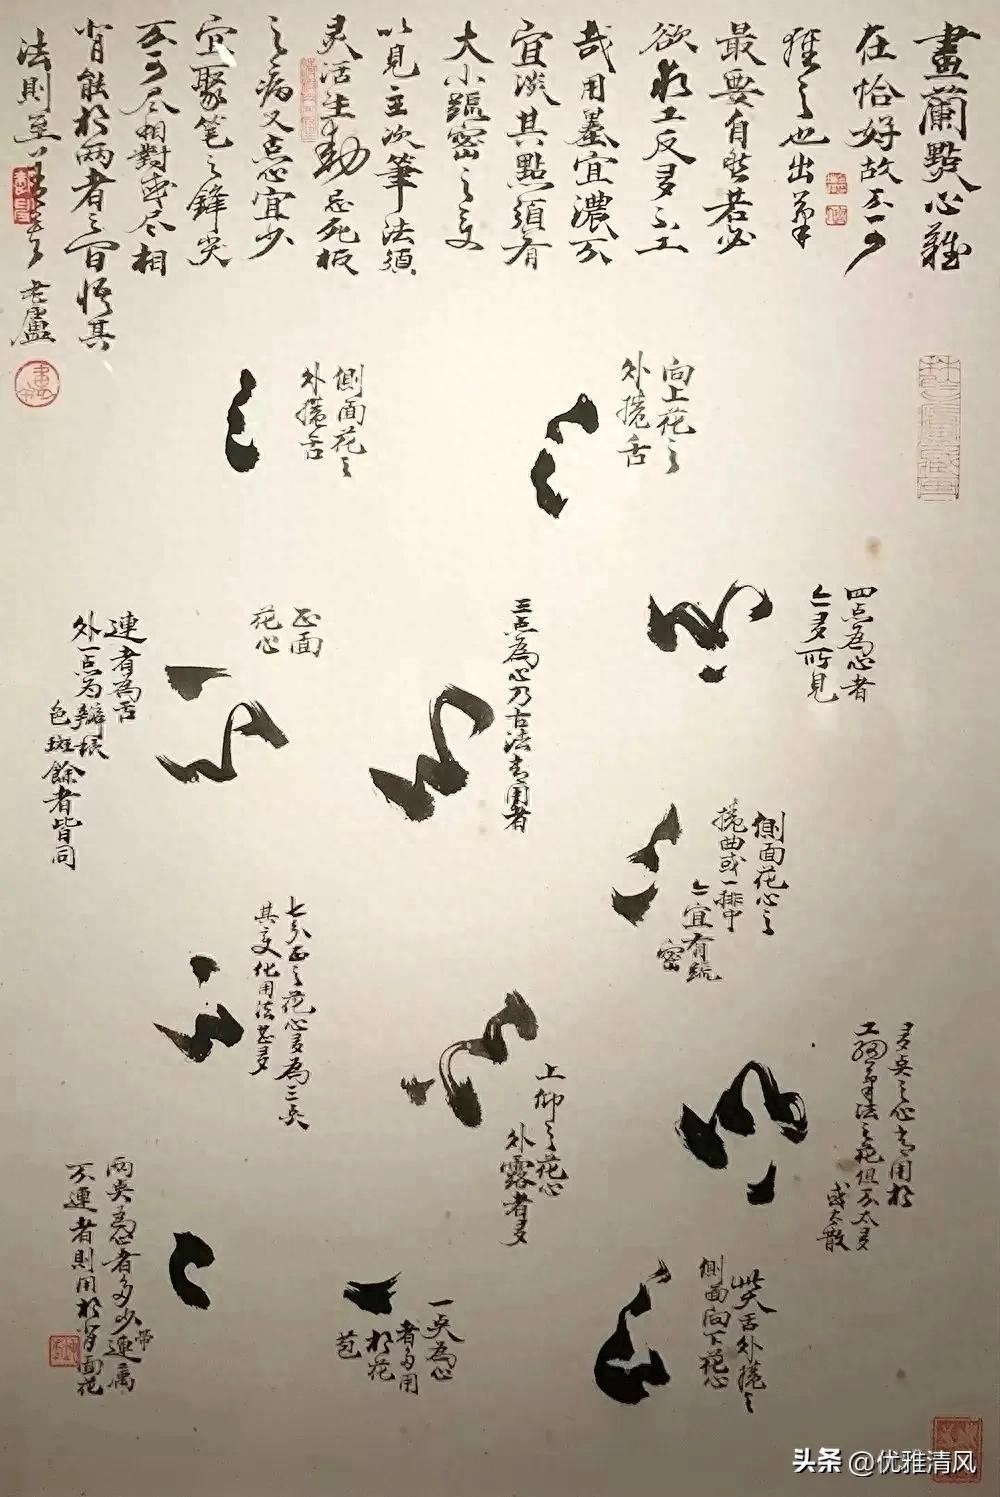 畫蘭點心難
在恰好故不可
擁之也出筆
最要自然若必
欲求工反多不工
哉用墨宜濃不
宜淡其點須有
大小疏密之变
以見主次筆法須
灵活生動忌死板
之病又点心宜少
宜聚笔之鋒尖
不可尽相對或尽相
背能於兩者之間悟其
法則至
老盧
向上花之
外捲舌
側面花之
外捲舌
四点為心者
亦多所見
三点為心乃古法者用者
正面
花心
連者為舌
外一点为瓣根
色斑餘者皆同
側面花心之
捲曲或一排中
亦宜有疏
密
七分正之花心多為三点
其变化用法甚多
多点之心者用於
工細筆法之花但不太多
或太散
上仰之花心
外露者多
兩点為心者多少帶連属
不連者則用於背面花
一点為心
者多用
於花
苞
此大舌外捲之
側面向下花心
头条 @优雅清风